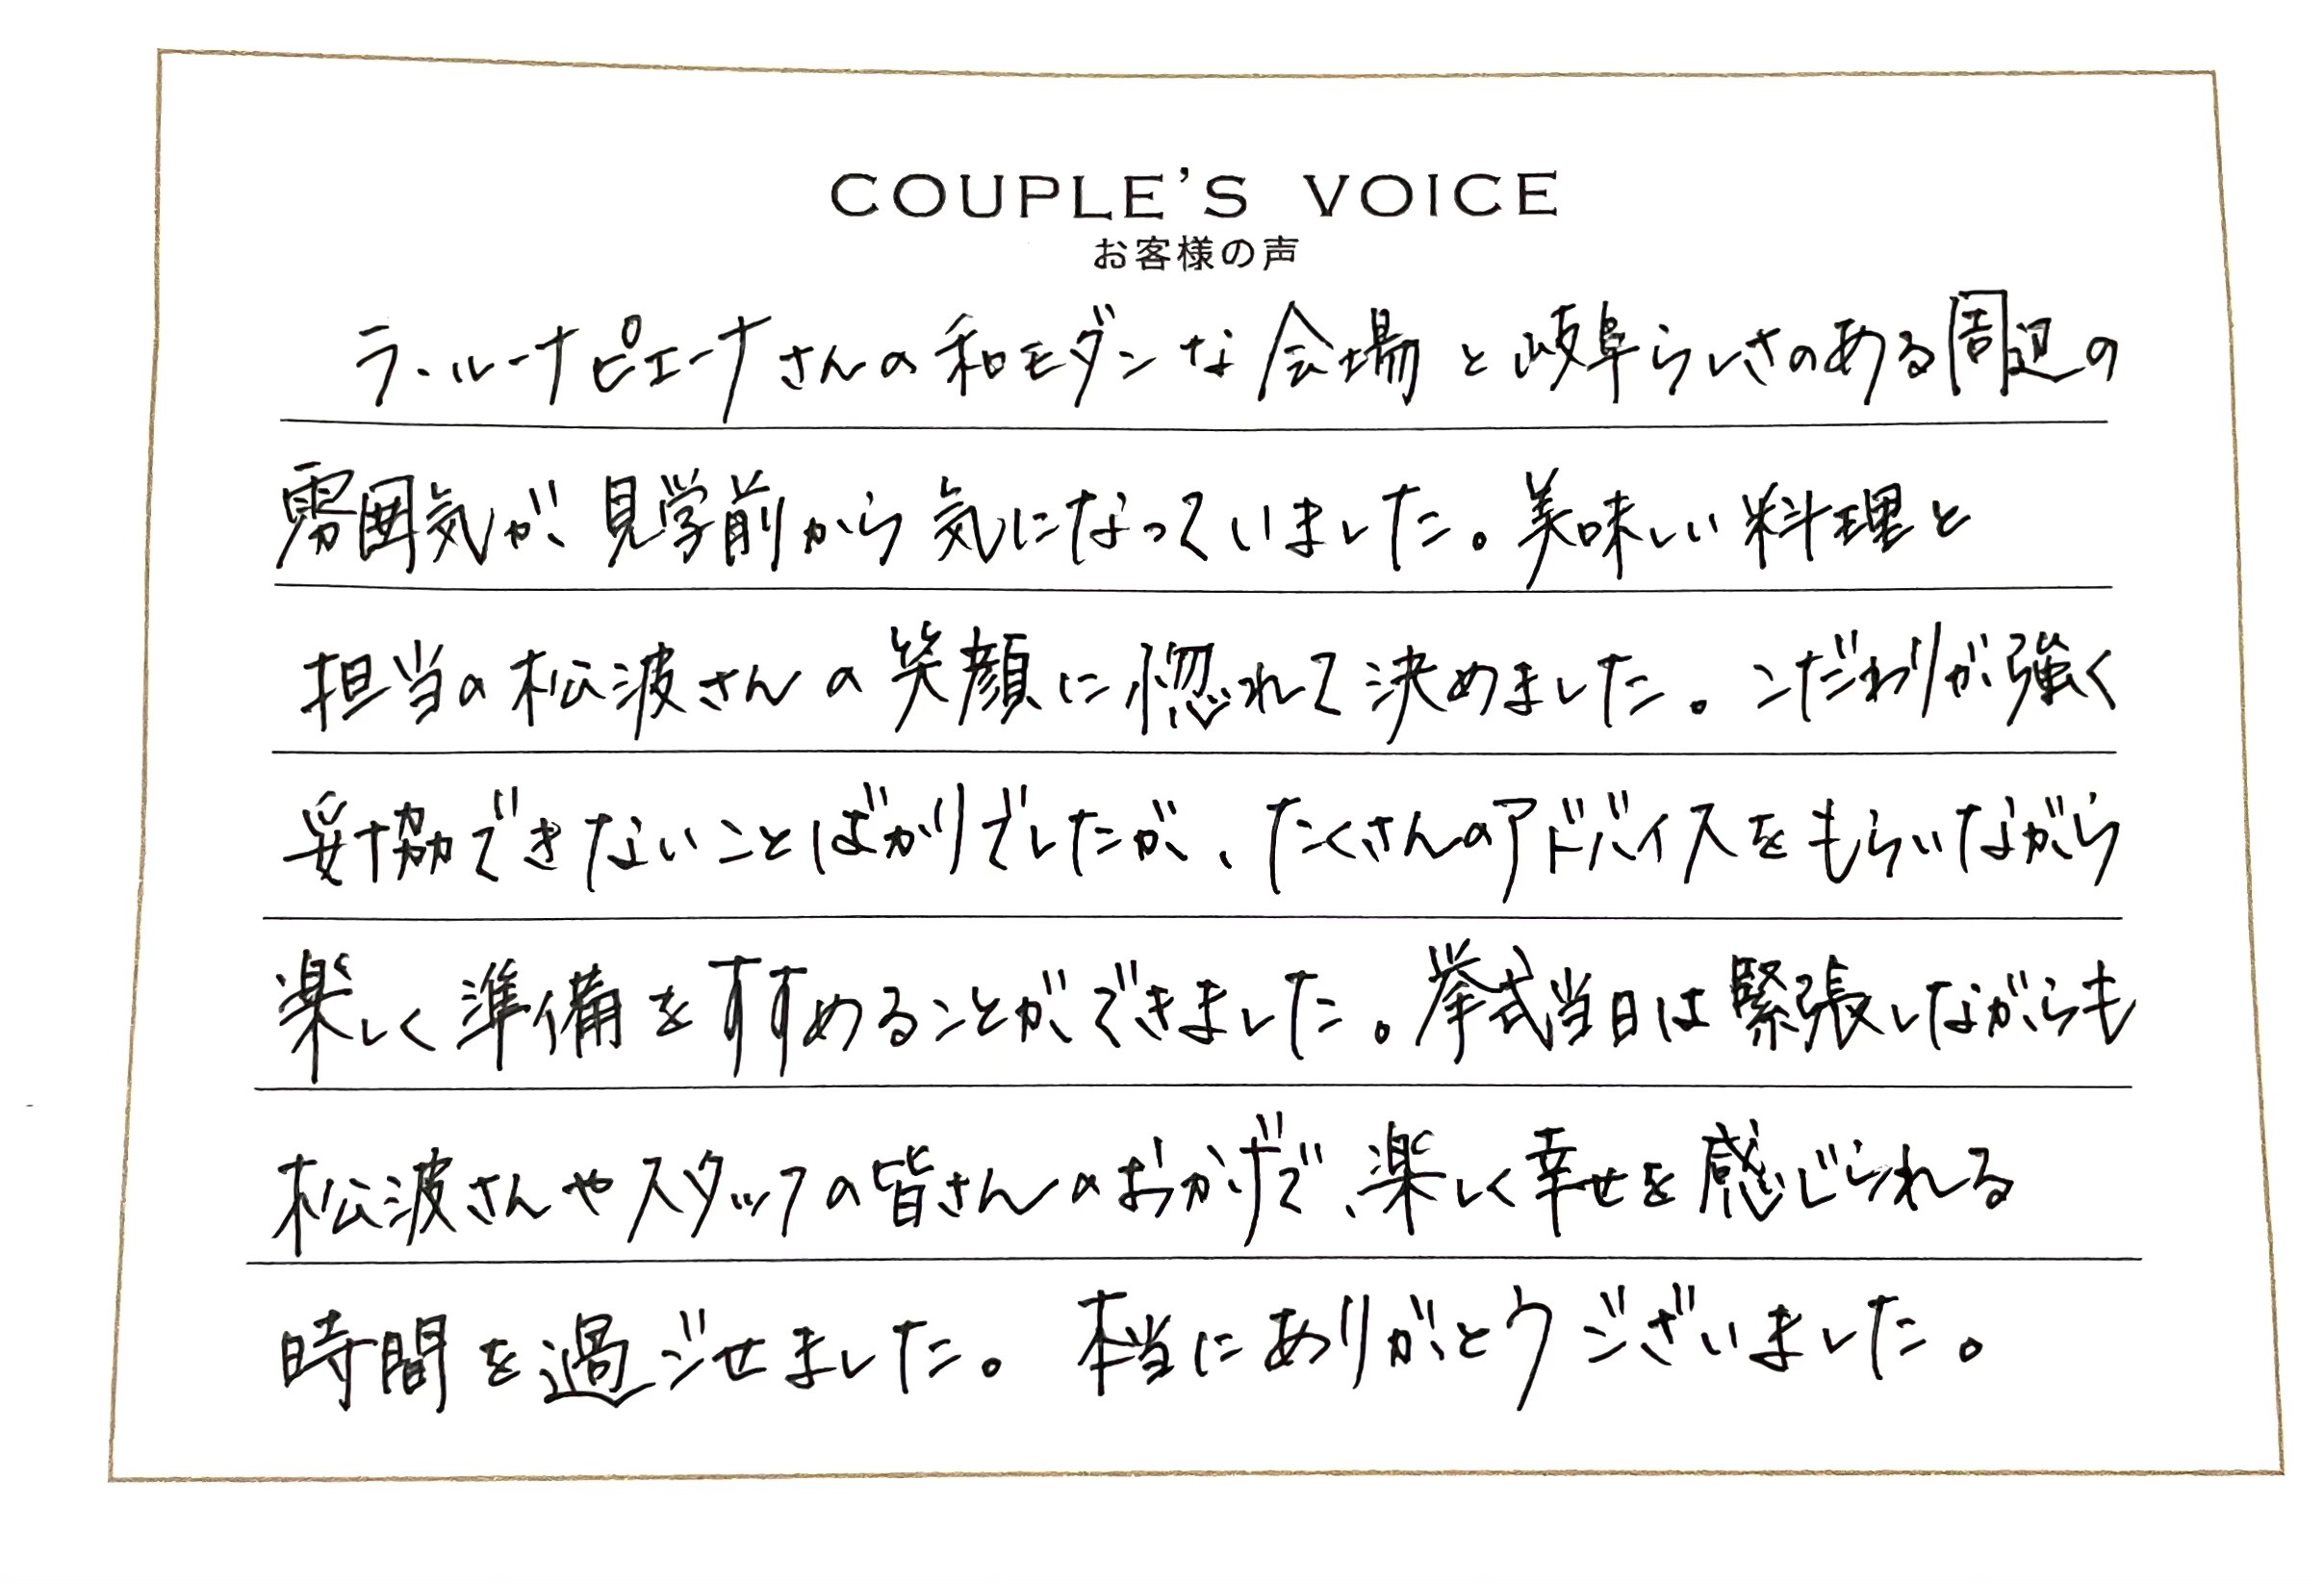 COUPLE'S VOICE
お客様の声
ラ・ルーナピエーナさんの和モダンな会場と岐阜らしさのある周辺の
雰囲気が、見学前から気になっていました。美味しい料理と
担当の松波さんの笑顔に惚れて決めました。こだわりが強く
妥協できないことばかりでしたが、たくさんのアドバイスをもらいながら
楽しく準備をすすめることができました。挙式当日は緊張しながらも
松波さんやスタッフの皆さんのおかげで、楽しく幸せを感じられる
時間を過ごせました。本当にありがとうございました。